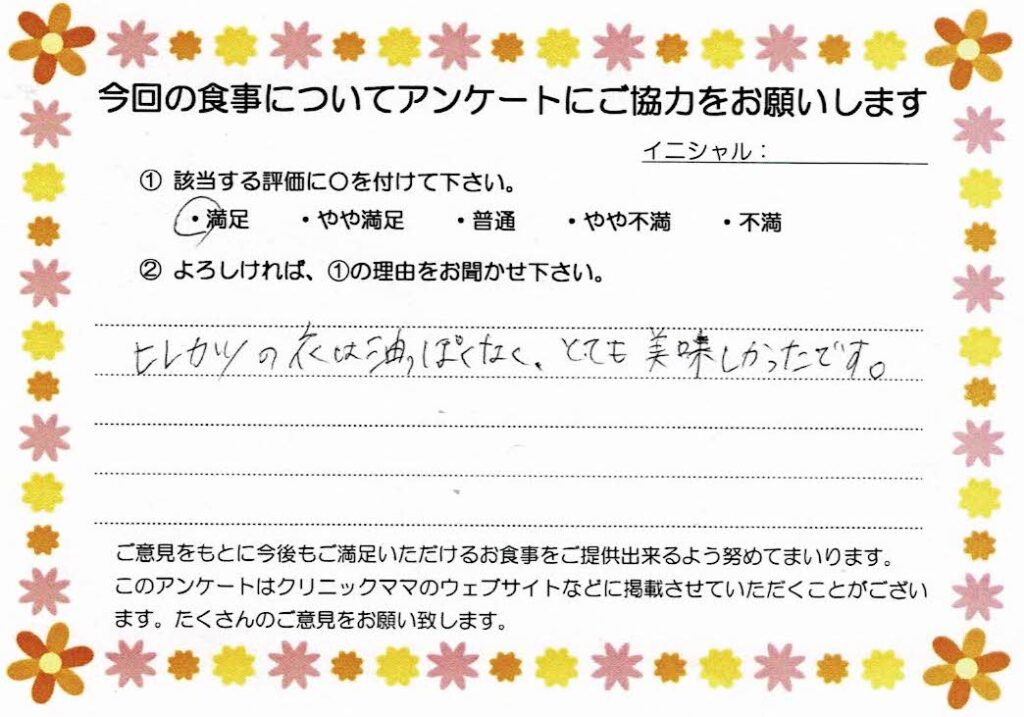 今回の食事についてアンケートにご協力をお願いします
イニシャル：
① 該当する評価に〇を付けて下さい。
・満足 ・やや満足 ・普通 ・やや不満 ・不満
② よろしければ、①の理由をお聞かせ下さい。
ヒレカツの衣は油っぽくなく、とても美味しかったです。
ご意見をもとに今後もご満足いただけるお食事をご提供出来るよう努めてまいります。
このアンケートはクリニックママのウェブサイトなどに掲載させていただくことがござい
ます。たくさんのご意見をお願い致します。